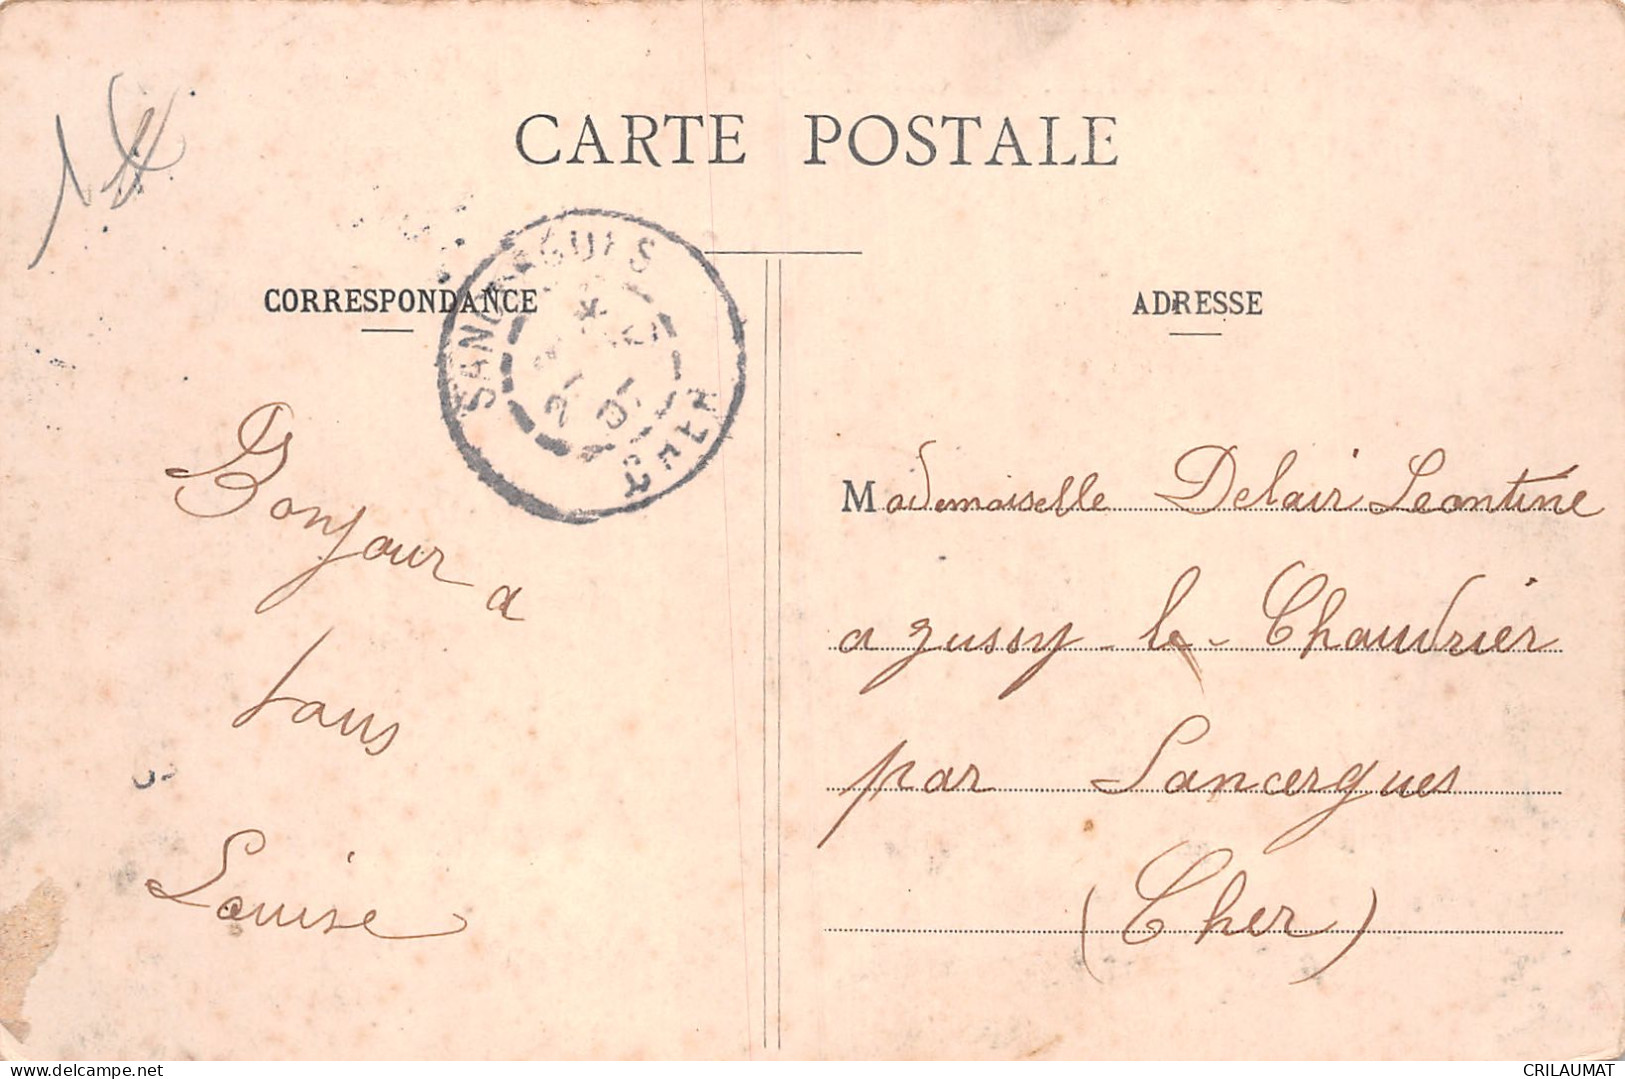 CARTE POSTALE
SANCERGUES
CHER
CORRESPONDANCE
ADRESSE
Bonjour a
tous
Louise
Mademoiselle Delair Leontine
a Jussy-le-Chaudrier
par Sancergues
(Cher)
CRILAUMAT